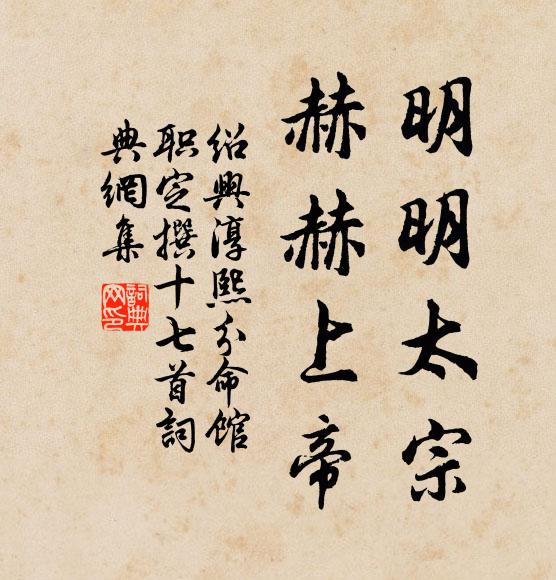 明明太宗
赫赫上帝
绍興淳熙分命馆
职定撰十七首詞
典網集
詞典
网印